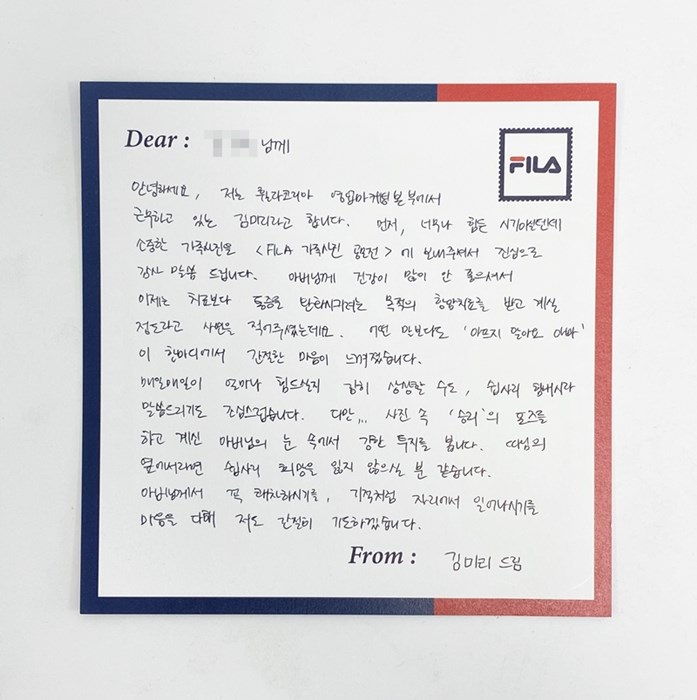 Dear : 님께
FILA
안녕하세요, 저는 휠라코리아 영업마케팅본부에서
근무하고 있는 김미리라고 합니다. 먼저, 너무나 힘든 시기이실텐데
소중한 가족사진을 <FILA 가족사진 공모전> 에 보내주셔서 진심으로
감사 말씀 드립니다. 아버님께 건강이 많이 안 좋으셔서
이제는 치료보다 통증을 완화시키려는 목적의 항암치료를 받고 계실
정도라고 사연을 적어주셨는데요. 어떤 말보다도 '아프지 말아요 아빠'
이 한마디에서 간절한 마음이 느껴졌습니다.
매일매일이 얼마나 힘드실지 감히 상상할 수도, 쉽사리 힘내시라
말씀드리기도 조심스럽습니다. 다만,,, 사진 속 '승리'의 포즈를
하고 계신 아버님의 눈 속에서 강한 투지를 봅니다. 따님의
옆에서라면 쉽사리 희망을 잃지 않으실 분 같습니다.
아버님께서 꼭 쾌차하시기를, 기적처럼 자리에서 일어나시기를
마음을 다해 저도 간절히 기도하겠습니다.
From : 김미리 드림